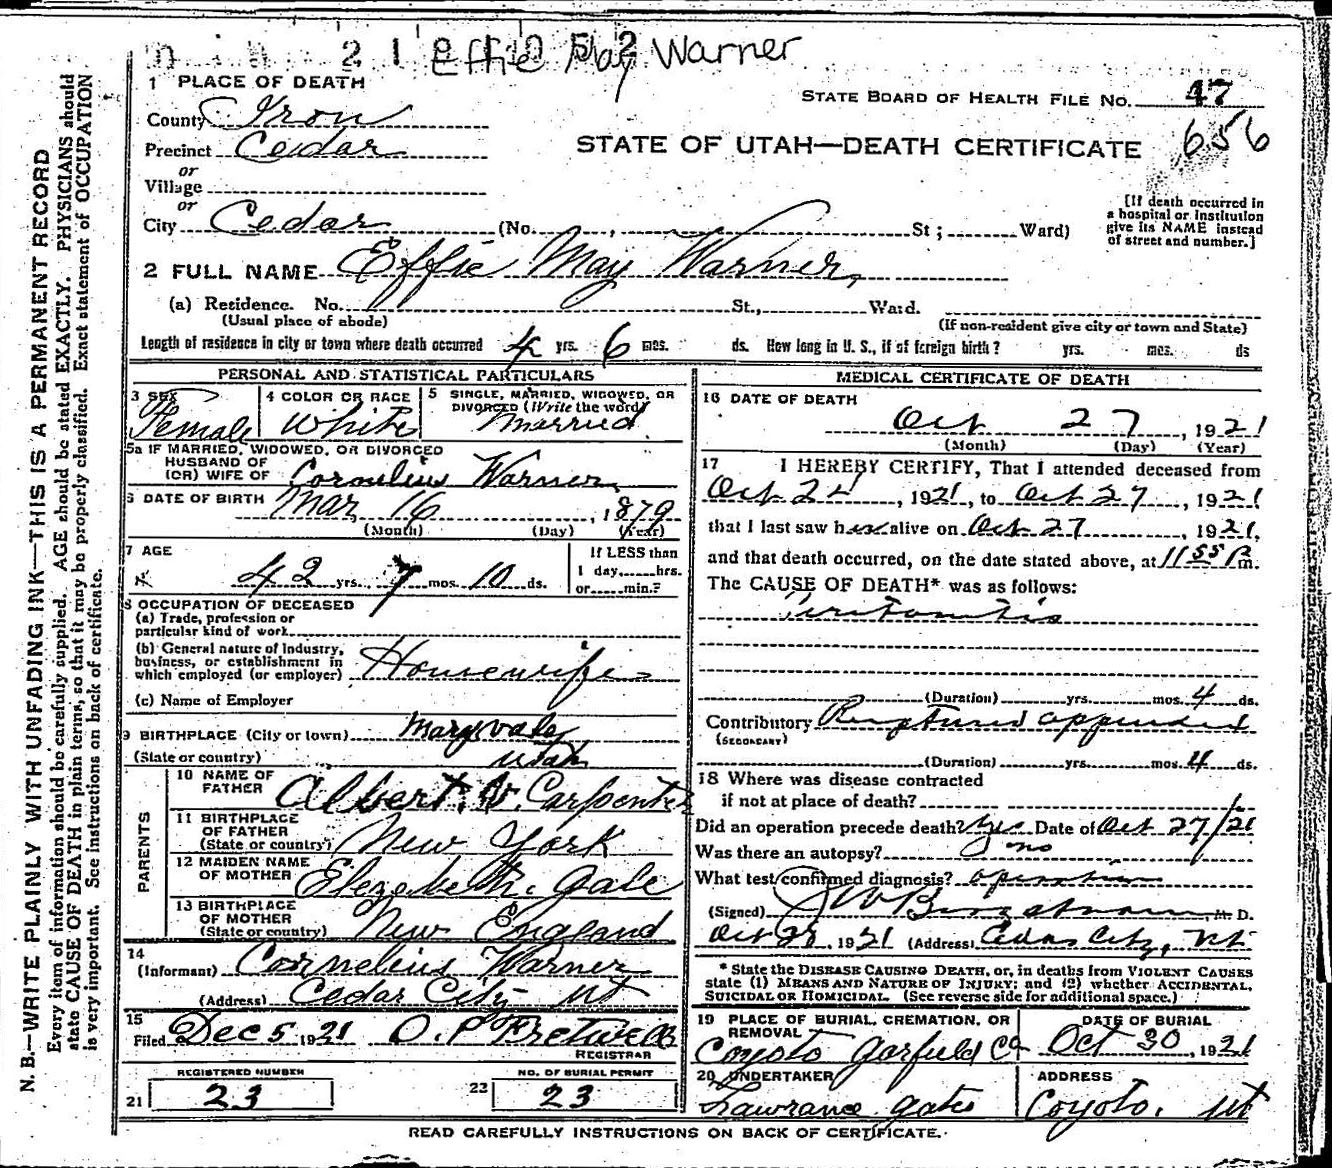 Effie May Warner
1 PLACE OF DEATH
STATE BOARD OF HEALTH FILE NO. 47
County Iron
656
Precinct Cedar
STATE OF UTAH—DEATH CERTIFICATE
or
Village
or
City Cedar (No. , St ; Ward)
[If death occurred in
a hospital or institution
give its NAME instead
of street and number.]
2 FULL NAME Effie May Warner,
(a) Residence. No. St., Ward.
(Usual place of abode)
(If non-resident give city or town and State)
Length of residence in city or town where death occurred 4 yrs. 6 mos. ds. How long in U. S., if of foreign birth? yrs. mos. ds
PERSONAL AND STATISTICAL PARTICULARS
3 SEX
Female
4 COLOR OR RACE
White
5 SINGLE, MARRIED, WIDOWED, OR
DIVORCED (Write the word)
Married
5a IF MARRIED, WIDOWED, OR DIVORCED
HUSBAND OF
(OR) WIFE OF Cornelius Warner
6 DATE OF BIRTH Mar 16, 1879
(Month) (Day) (Year)
7 AGE
42 yrs. 7 mos. 10 ds.
If LESS than
1 day, hrs.
or min.?
8 OCCUPATION OF DECEASED
(a) Trade, profession or
particular kind of work
(b) General nature of Industry,
business, or establishment in
which employed (or employer) Housewife
(c) Name of Employer
9 BIRTHPLACE (City or town) Maryvale
(State or country) Utah
PARENTS
10 NAME OF
FATHER Albert Carpenter
11 BIRTHPLACE
OF FATHER
(State or country) New York
12 MAIDEN NAME
OF MOTHER Elezabeth Gale
13 BIRTHPLACE
OF MOTHER
(State or country) New England
14
(Informant) Cornelius Warner
(Address) Cedar City Ut
15
Filed Dec 5 1921 O. P. Fretwell
REGISTRAR
REGISTERED NUMBER
21 23
NO. OF BURIAL PERMIT
22 23
MEDICAL CERTIFICATE OF DEATH
16 DATE OF DEATH
Oct 27, 1921
(Month) (Day) (Year)
17 I HEREBY CERTIFY, That I attended deceased from
Oct 24, 1921, to Oct 27, 1921
that I last saw her alive on Oct 27, 1921,
and that death occurred, on the date stated above, at 11 55 P m.
The CAUSE OF DEATH* was as follows:
Peritonitis
(Duration) yrs. mos. 4 ds.
Contributory Ruptured appendix
(SECONDARY)
(Duration) yrs. mos. 4 ds.
18 Where was disease contracted
if not at place of death?
Did an operation precede death? Yes Date of Oct 27/21
Was there an autopsy? no
What test confirmed diagnosis? operation
(Signed) M. D.
Oct 28, 1921 (Address) Cedar City, Ut
* State the DISEASE CAUSING DEATH, or, in deaths from VIOLENT CAUSES
state (1) MEANS AND NATURE OF INJURY; and (2) whether ACCIDENTAL,
SUICIDAL or HOMICIDAL. (See reverse side for additional space.)
19 PLACE OF BURIAL, CREMATION, OR
REMOVAL
Coyoto Garfield Co
DATE OF BURIAL
Oct 30, 1921
20 UNDERTAKER
Lawrance Gates
ADDRESS
Coyoto, Ut
READ CAREFULLY INSTRUCTIONS ON BACK OF CERTIFICATE.
N. B.—WRITE PLAINLY WITH UNFADING INK—THIS IS A PERMANENT RECORD
Every item of information should be carefully supplied. AGE should be stated EXACTLY. PHYSICIANS should
state CAUSE OF DEATH in plain terms, so that it may be properly classified. Exact statement of OCCUPATION
is very important. See instructions on back of certificate.